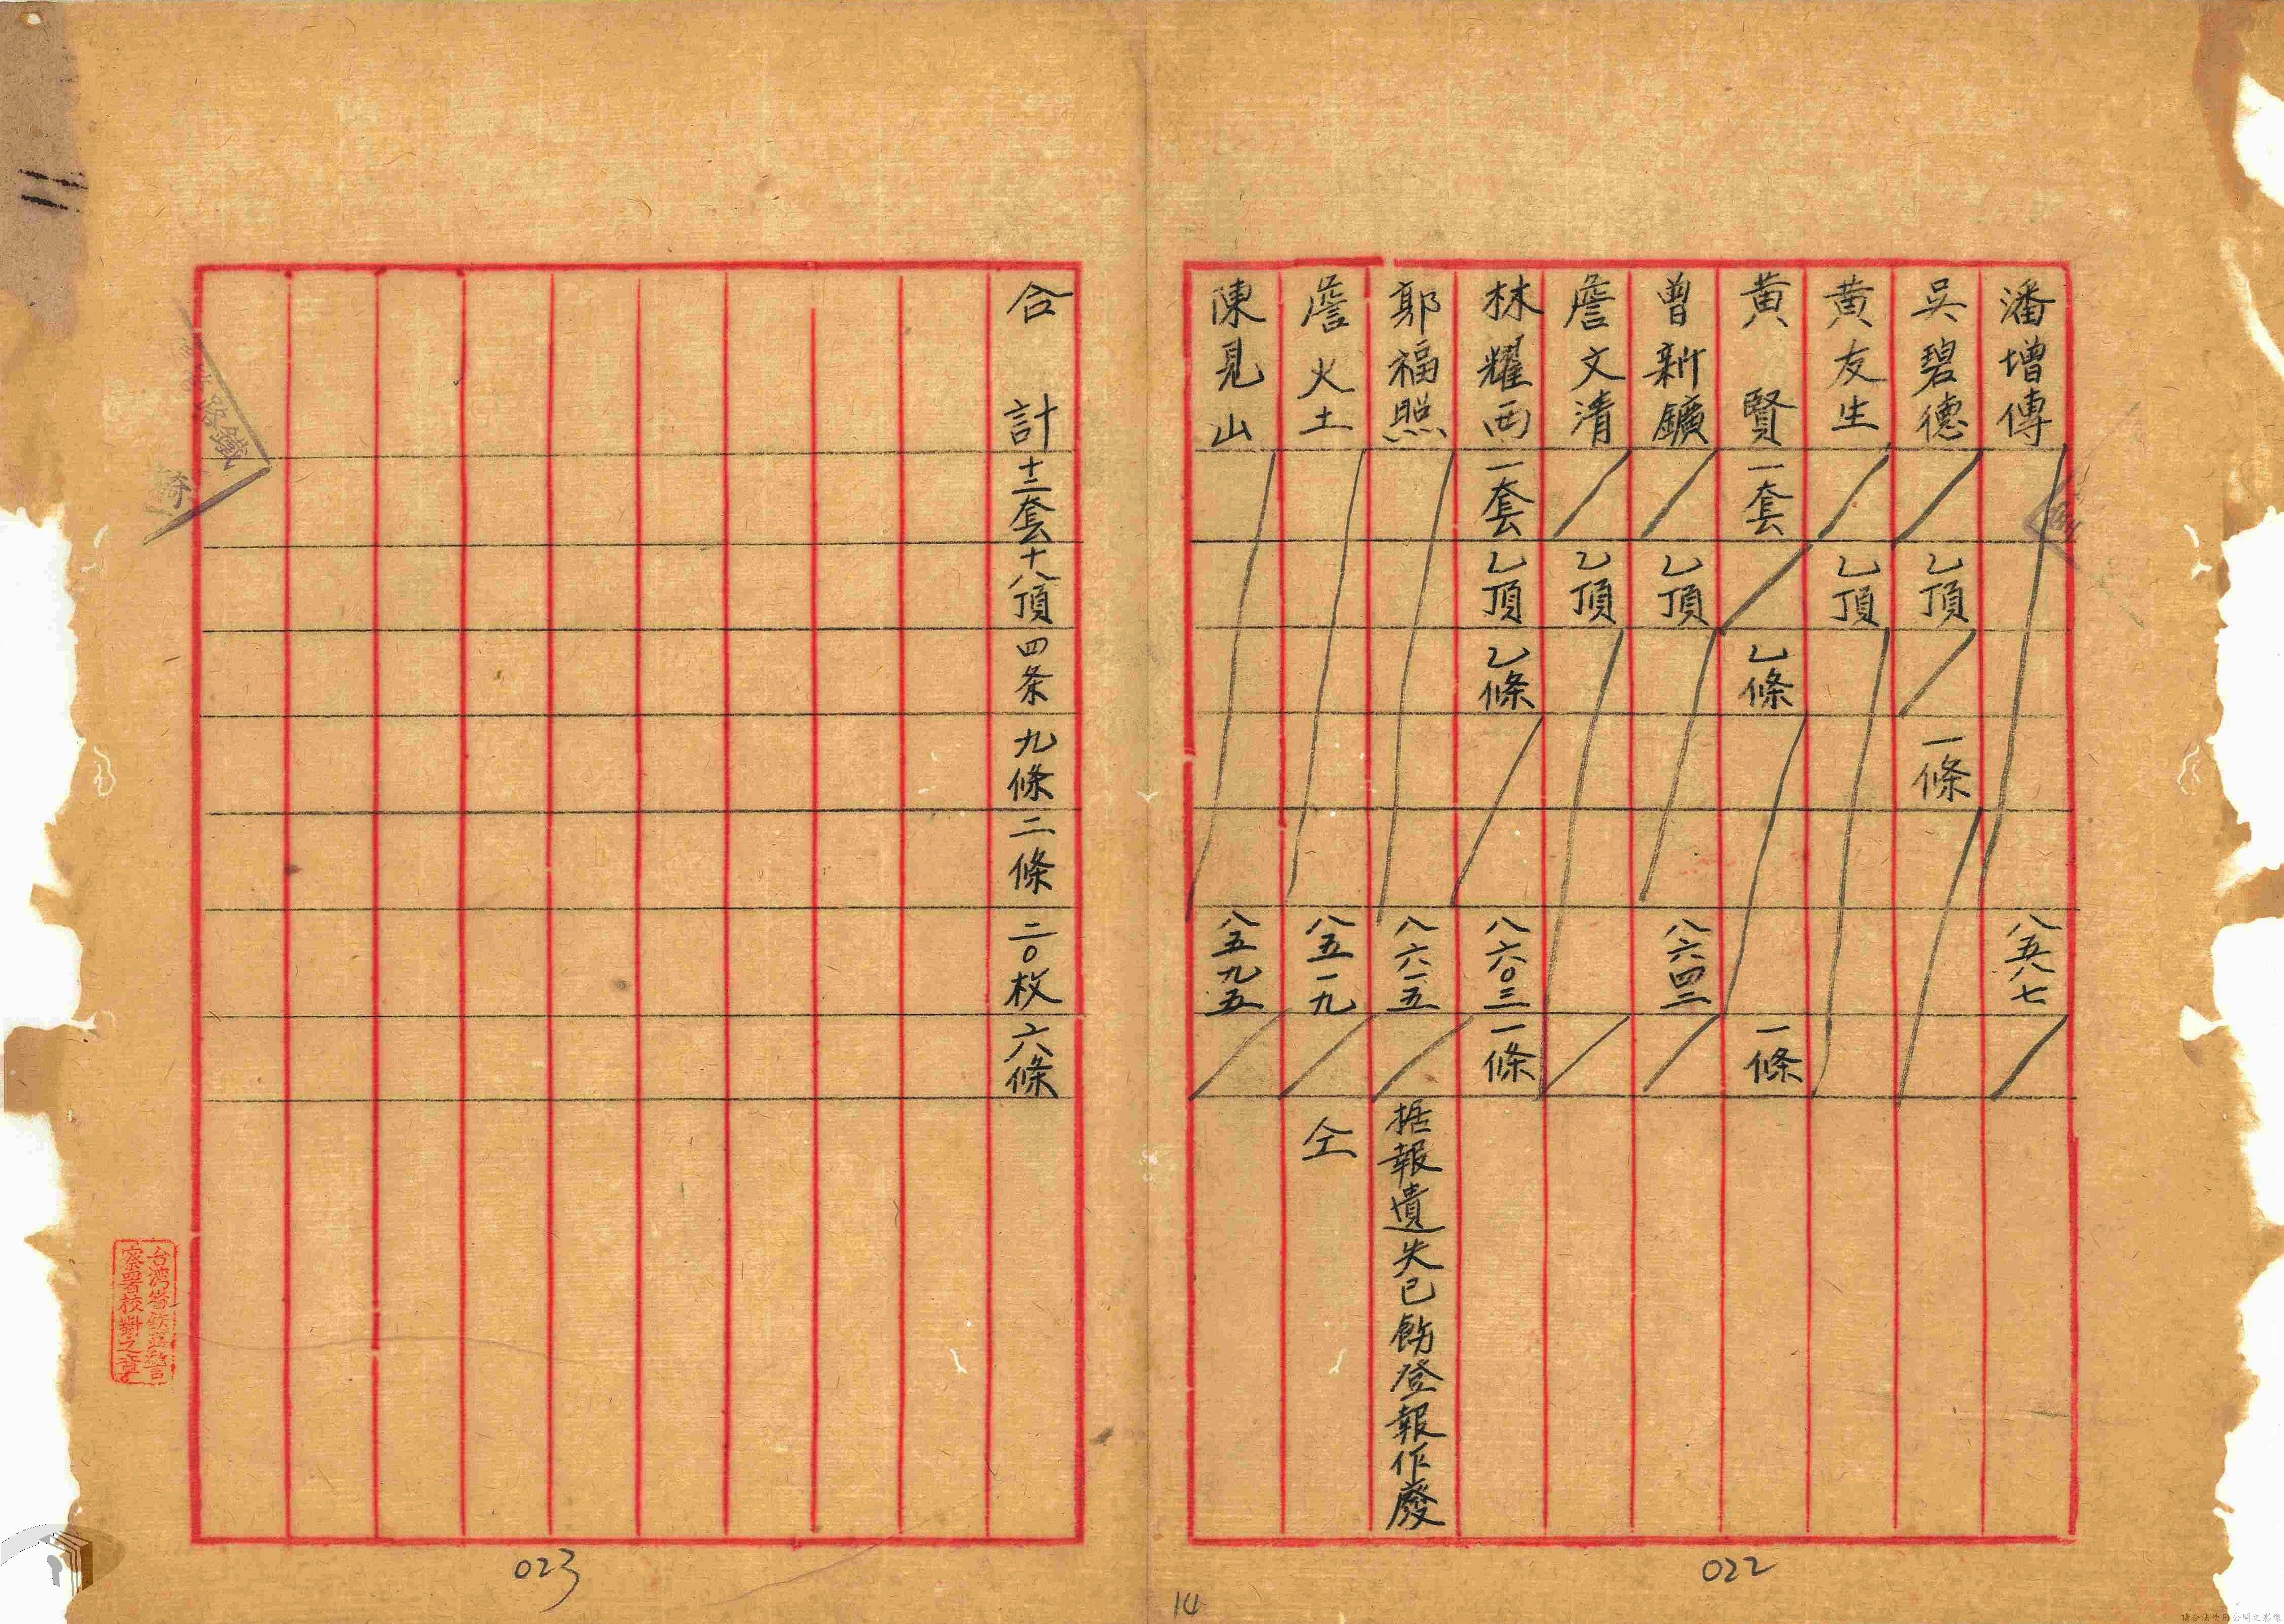 潘增傳 八五八七
吳碧德 乙頂 一條
黃友生 乙頂
黃賢 一套 乙條 一條
曾新鑛 乙頂 八六四二
詹文清 乙頂
林耀西 一套 乙頂 乙條 八六〇三 一條
郭福照 八六一五 据報遺失已飭登報作廢
詹火土 八五一九 仝
陳見山 八五九五
022
合計 十二套 十八頂 四条 九條 二條 二〇枚 六條
023
14
台灣省鐵路警
察署校對之章
請合法使用公開之影像